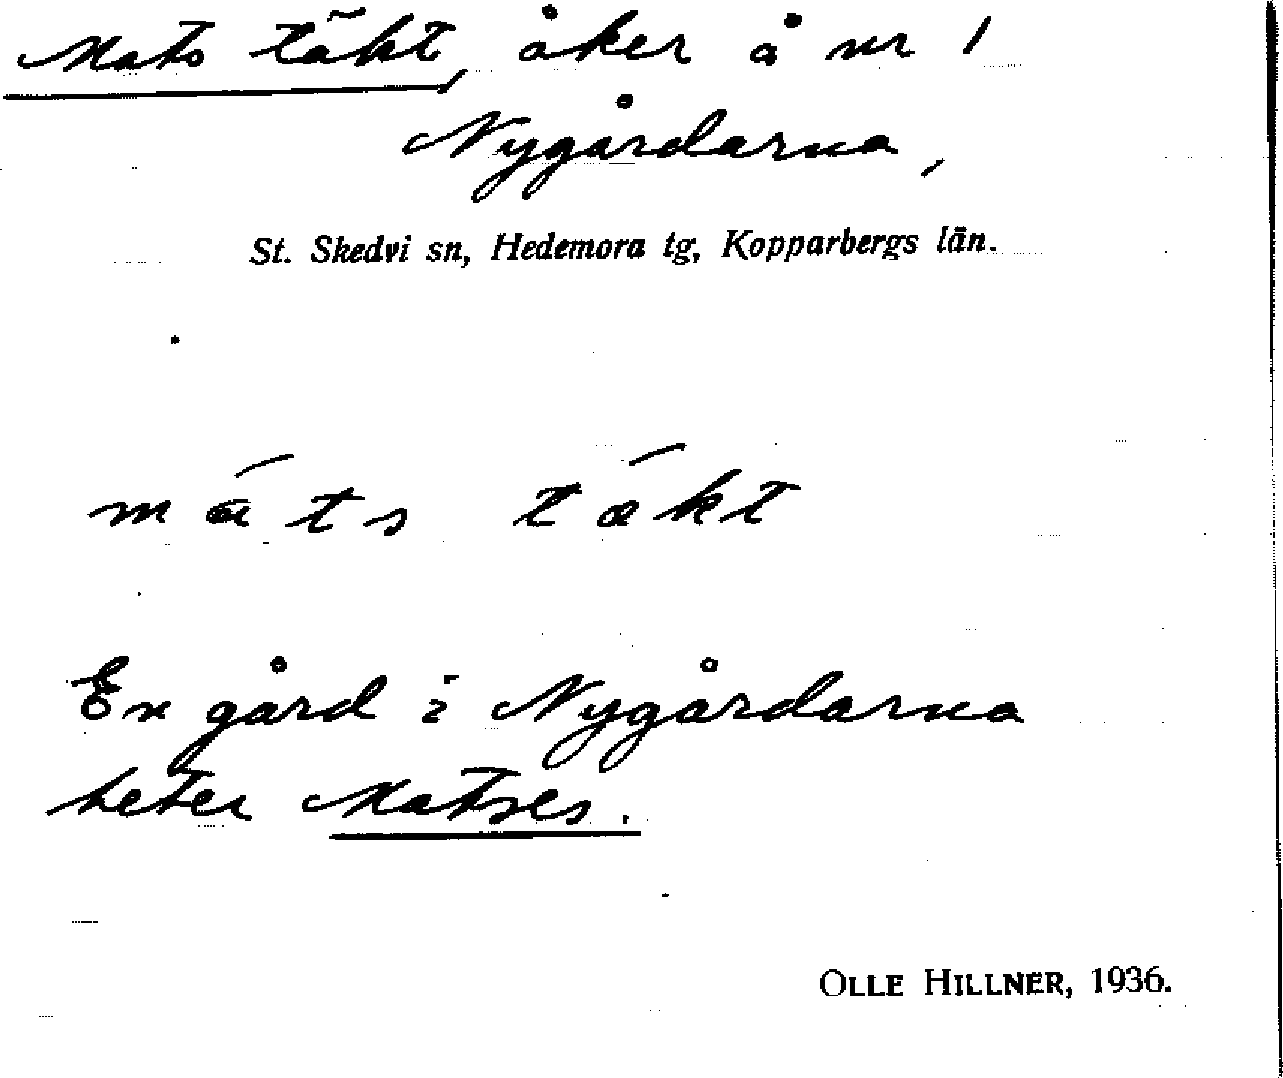 Mats täkt, åker å nr 1
Nygårdarna,
St. Skedvi sn, Hedemora tg, Kopparbergs län.
máts tǽkt
En gård i Nygårdarna
heter Matses.
OLLE HILLNER, 1936.